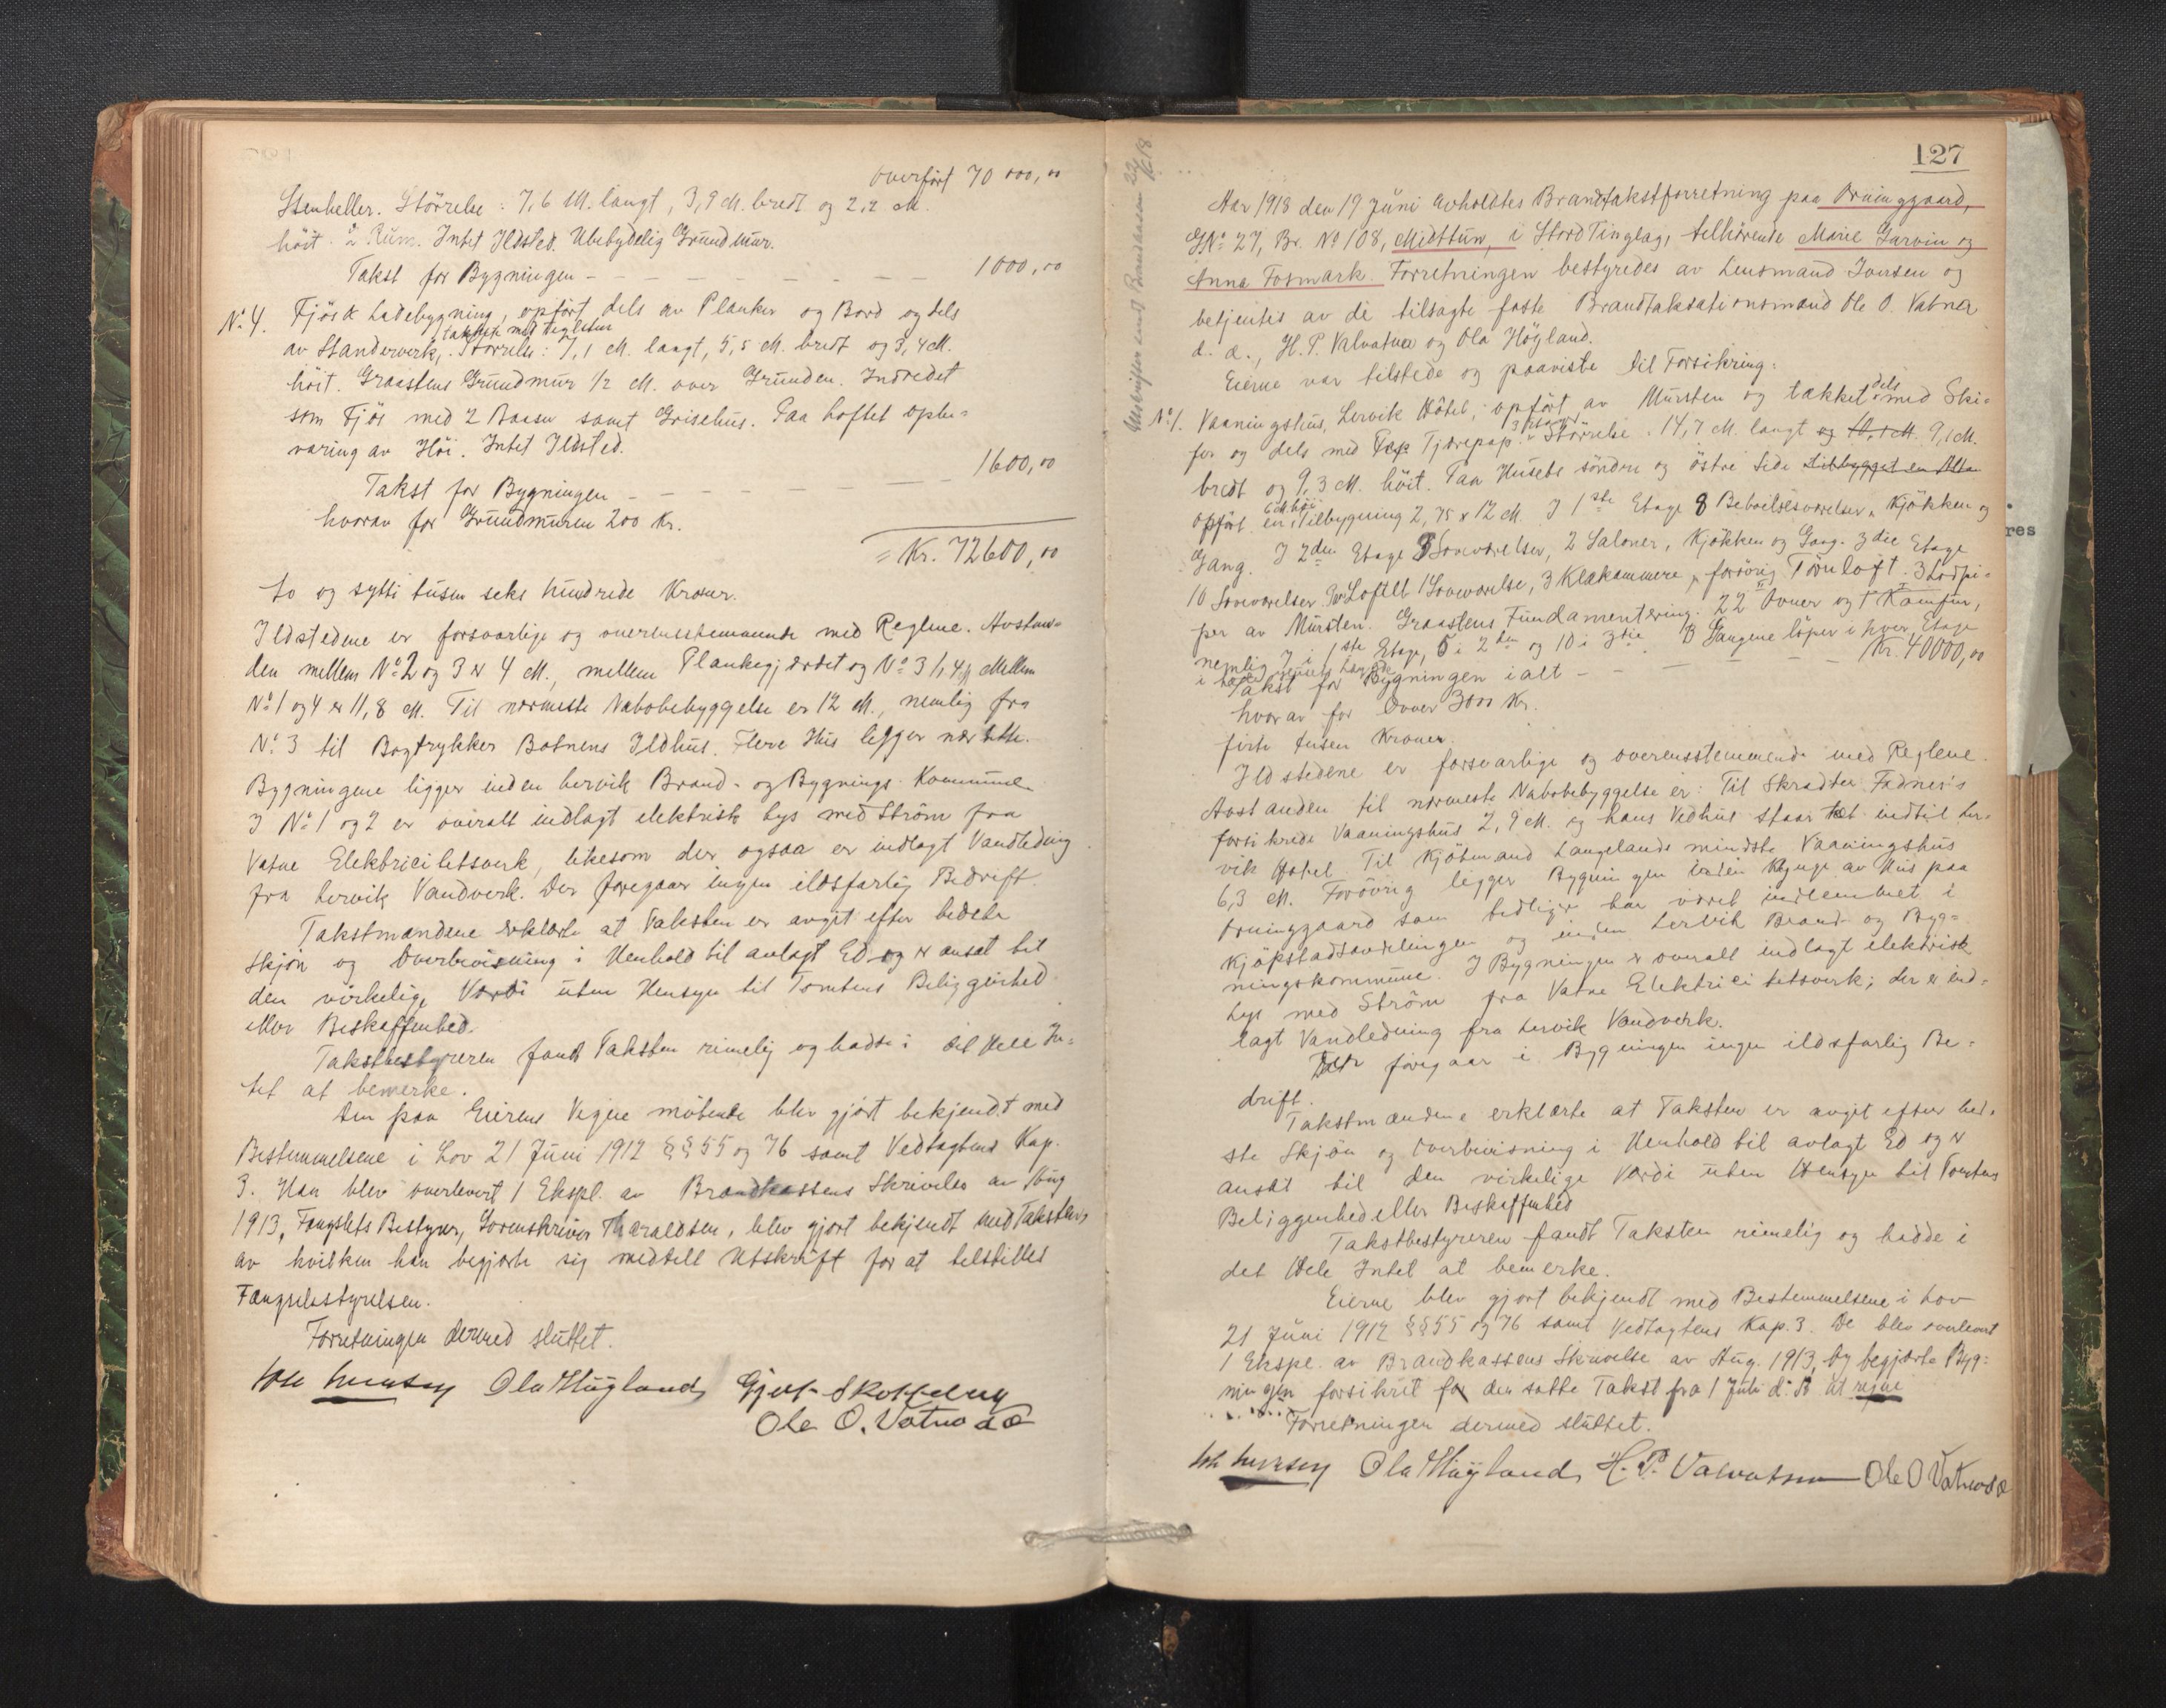 overført 70 000,00
Stenheller. Størrelse: 7,6 M. langt, 3,9 M. bredt og 2,2 M.
høit. 2 Rum. Intet Ildsted. Ubetydelig Grundmur.
Takst for Bygningen - 1000,00
No. 4. Fjøs & Ladebygning, opført dels av Planker og Bord og dels
takket med Teglsten
av Standerverk, Størrelse: 7,1 M. langt, 5,5 M. bredt og 3,4 M.
høit. Graastens Grundmur 1/2 M. over Grunden. Indredet
som Fjøs med 2 Baaser samt Grisehus. Paa Loftet opbe=
varing av Høi. Intet Ildsted.
Takst for Bygningen - 1600,00
hvorav for Grundmuren 200 Kr.
= Kr. 72600,00
to og sytti tusen seks hundrede Kroner.
Ildstedene er forsvarlige og overensstemmende med Reglene. Avstan=
den mellem No. 2 og 3 er 4 M., mellem Plankegjærdet og No. 3 1,4 M. Mellem
No. 1 og 4 er 11,8 M. Til nærmeste Nabobebyggelse er 12 M., nemlig fra
No. 3 til Bogtrykker Botnens Ildhus. Flere Hus ligger nær dette.
Bygningene ligger inden Lervik Brand- og Bygnings-Kommune.
I No. 1 og 2 er overalt indlagt elektrisk Lys med Strøm fra
Vatne Elektricitetsverk, likesom der ogsaa er indlagt Vandledning
fra Lervik Vandverk. Der foregaar ingen ildsfarlig Bedrift.
Takstmændene erklærte at Taksten er avgit efter bedste
Skjøn og Overbevisning i Henhold til avlagt Ed og er ansat til
den virkelige Værdi uten Hensyn til Tomtens Beliggenhed
eller Beskaffenhed.
Takstbestyreren fandt Taksten rimelig og hadde i det Hele In=
tet at bemerke.
Den paa Eierens Vegne møtende blev gjort bekjendt med
Bestemmelsene i Lov 21 Juni 1912 §§ 55 og 76 samt Vedtægtens Kap.
3. Han blev overlevert 1 Ekspl. av Brandkassens Skrivelse av Aug
1913. Fængslets Bestyrer, Sorenskriver Tharaldsen, blev gjort bekjendt med Taksten,
av hvilken han begjærte sig meddelt Utskrift for at tilstilles
Fængselsstyrelsen.
Forretningen dermed sluttet.
Ola Høyland
Ole O. Vatna d.æ

127
Aar 1918 den 19 Juni avholdtes Brandtakstforretning paa Ørninggaard,
GNo. 27, Br. No. 108, Midttun, i Stord Tinglag, tilhørende Marie Garvin og
Anna Fosmark. Forretningen bestyredes av Lensmand Iversen og
betjentes av de tilsagte faste Brandtakstationsmænd Ole O. Vatna
d. æ., H. P. Valvatna og Ola Høyland.
Eierne var tilstede og paaviste til Forsikring:
No. 1. Vaaningshus, Lervik Hôtel, opført av Mursten og tækket dels med Ski=
fer og dels med Tjærepap. 3 Etager Størrelse: 14,7 M. langt og 9,1 M.
bredt og 9,3 M. høit. Paa Husets søndre og østre Side tilbygget en
opført en 6 M. høi Tilbygning 2,75 x 12 M. I 1ste Etage 8 Beboelsesværelser, Kjøkken og
Gang. I 2den Etage 8 Soveværelser, 2 Saloner, Kjøkken og Gang. 3die Etage
10 Soveværelser. Paa Loftet 1 Soveværelse, 3 Klækammere, forøvrig Tørreloft. 3 Lodpi=
per av Mursten. Graastens Fundamentering. 22 Ovner og 1 Komfur,
nemlig 7 i 1ste Etage, 5 i 2den og 10 i 3die. Gangene løper i hver Etage
Takst for Bygningen ialt - Kr. 40000,00
hvorav for Ovner 3000 Kr.
firti tusen Kroner.
Ildstedene er forsvarlige og overensstemmende med Reglene.
Avstanden til nærmeste Nabobebyggelse er: Til Skrædder Fadnes's
forsikrede Vaaningshus 2,9 M. og hans Vedhus staar tæt indtil Ler=
vik Hotel. Til Kjøbmand Langelands mindste Vaaningshus
6,3 M. Forøvrig ligger Bygningen inden Klynge av Hus paa
Ørninggaard som tidligere har været indlemmet i
Kjøpstadsavdelingen og inden Lervik Brand- og Byg=
ningskommune. I Bygningen er overalt indlagt elektrisk
Lys med Strøm fra Vatne Elektricitetsverk; der er ind=
lagt Vandledning fra Lervik Vandverk.
Der foregaar i Bygningen ingen ildsfarlig Be=
drift.
Takstmændene erklærte at Taksten er avgit efter bed=
ste Skjøn og Overbevisning i Henhold til avlagt Ed og er
ansat til den virkelige Værdi uten Hensyn til Tomtens
Beliggenhed eller Beskaffenhed
Takstbestyreren fandt Taksten rimelig og hadde i
det Hele Intet at bemerke.
Eierne blev gjort bekjendt med Bestemmelsene i Lov
21 Juni 1912 §§ 55 og 76 samt Vedtægtens Kap. 3. De blev overlevert
1 Ekspl. av Brandkassens Skrivelse av Aug. 1913, og begjærte Byg=
ningen forsikret for den satte Takst fra 1 Juli d. A. at regne
Forretningen dermed sluttet.
Ola Høyland H. P. Valvatna Ole O Vatna d.æ
res